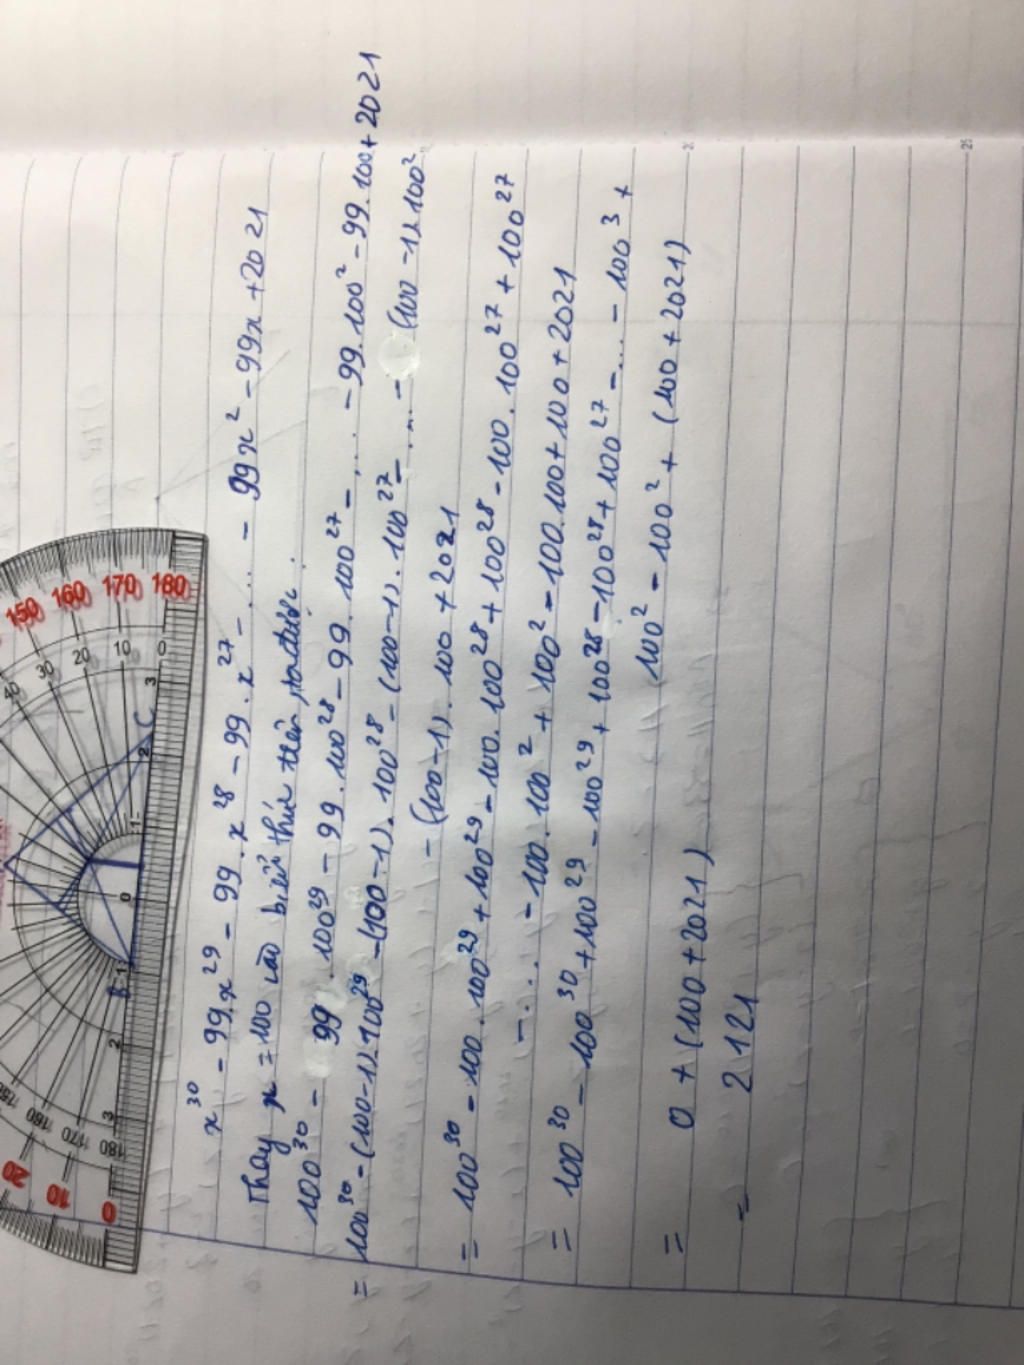 x³⁰ - 99.x²⁹ - 99.x²⁸ - 99.x²⁷ - .... - 99x² - 99x + 2021
Thay x = 100 vào biểu thức trên, ta được:
100³⁰ - 99.100²⁹ - 99.100²⁸ - 99.100²⁷ - ... - 99.100² - 99.100 + 2021
= 100³⁰ - (100-1).100²⁹ - (100-1).100²⁸ - (100-1).100²⁷ - .... - (100-1).100²
- (100-1).100 + 2021
= 100³⁰ - 100.100²⁹ + 100²⁹ - 100.100²⁸ + 100²⁸ - 100.100²⁷ + 100²⁷
- .... - 100.100² + 100² - 100.100 + 100 + 2021
= 100³⁰ - 100³⁰ + 100²⁹ - 100²⁹ + 100²⁸ - 100²⁸ + 100²⁷ - ... - 100³ +
100² - 100² + (100 + 2021)
= 0 + (100 + 2021)
= 2121
150 160 170 180
40 30 20 10 0
3 2 1 0 1 2 3
B C
150 160 170 180
20 10 0
25